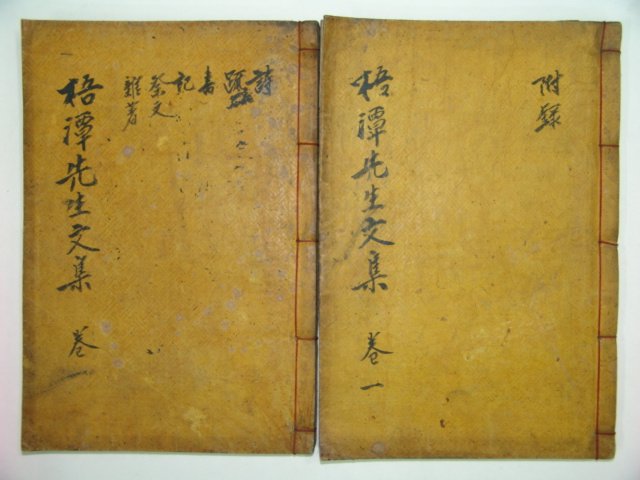 梧潭先生文集 卷一
詩
疏
書
記
祭文
雜著
梧潭先生文集 卷一
附錄